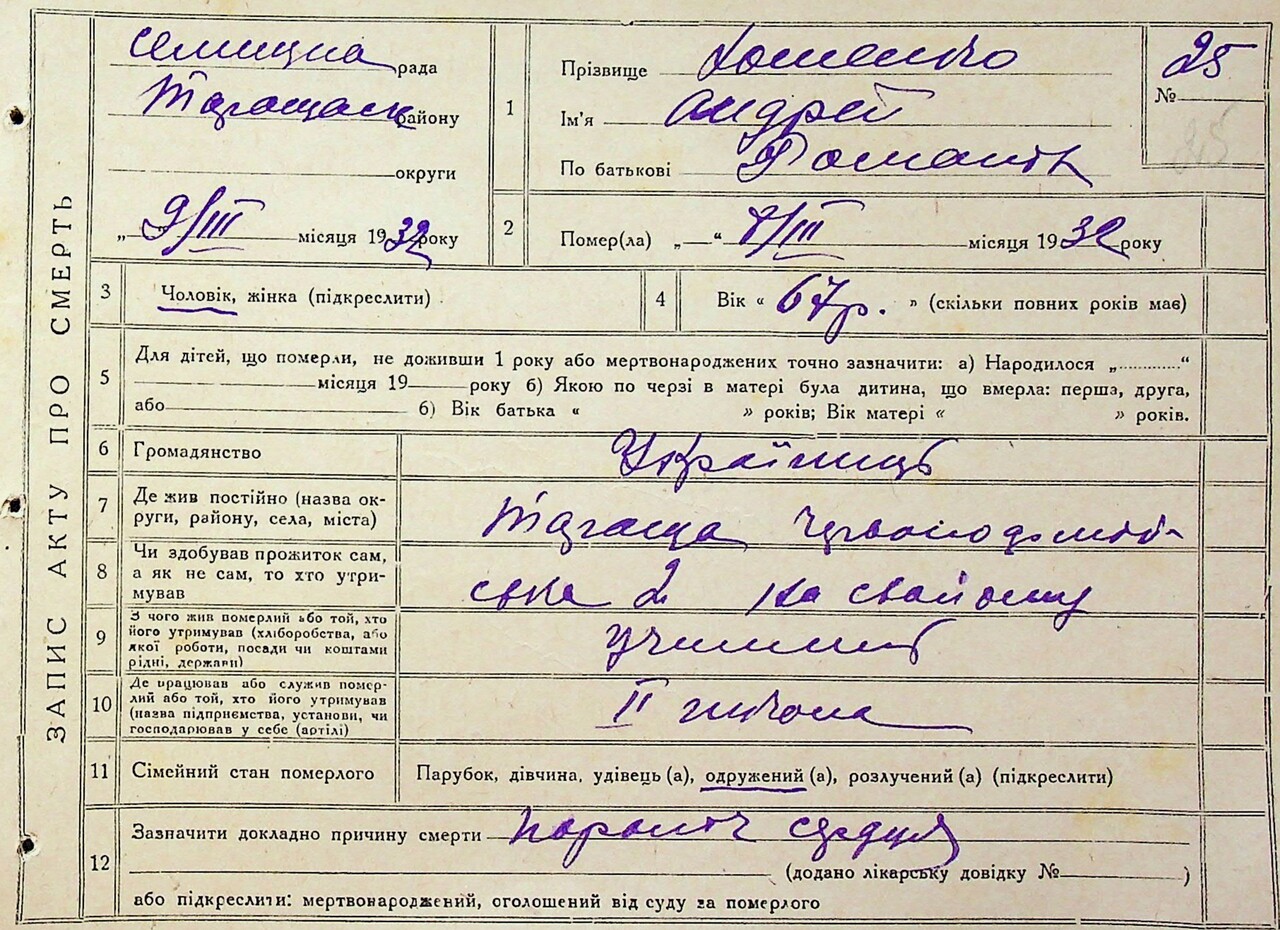 ЗАПИС АКТУ ПРО СМЕРТЬ
селищна рада
Таращан району
округи
„ 9/III місяця 1932 року
1
Прізвище Хоменко
Ім'я Андрей
По батькові Романов
№ 25
25
2
Помер(ла) „ “ 8/III місяця 1932 року
3
Чоловік, жінка (підкреслити)
4
Вік « 67р. » (скільки повних років має)
5
Для дітей, що померли, не доживши 1 року або мертвонароджених точно зазначити: а) Народилося „............“
місяця 19 року б) Якою по черзі в матері була дитина, що вмерла: перша, друга,
або б) Вік батька « » років; Вік матері « » років.
6
Громадянство
Українець
7
Де жив постійно (назва ок-
руги, району, села, міста)
Тараща
8
Чи здобував прожиток сам,
а як не сам, то хто утри-
мував
ська 2 на свойому
9
З чого жив померлий або той, хто
його утримував (хліборобства, або
якої роботи, посади чи коштами
рідні, держави)
10
Де працював або служив помер-
лий або той, хто його утримував
(назва підприємства, установи, чи
господарював у себе (артілі)
II школа
11
Сімейний стан померлого
Парубок, дівчина, удівець (а), одружений (а), розлучений (а) (підкреслити)
12
Зазначити докладно причину смерти
(додано лікарську довідку № )
або підкреслити: мертвонароджений, оголошений від суду за померлого